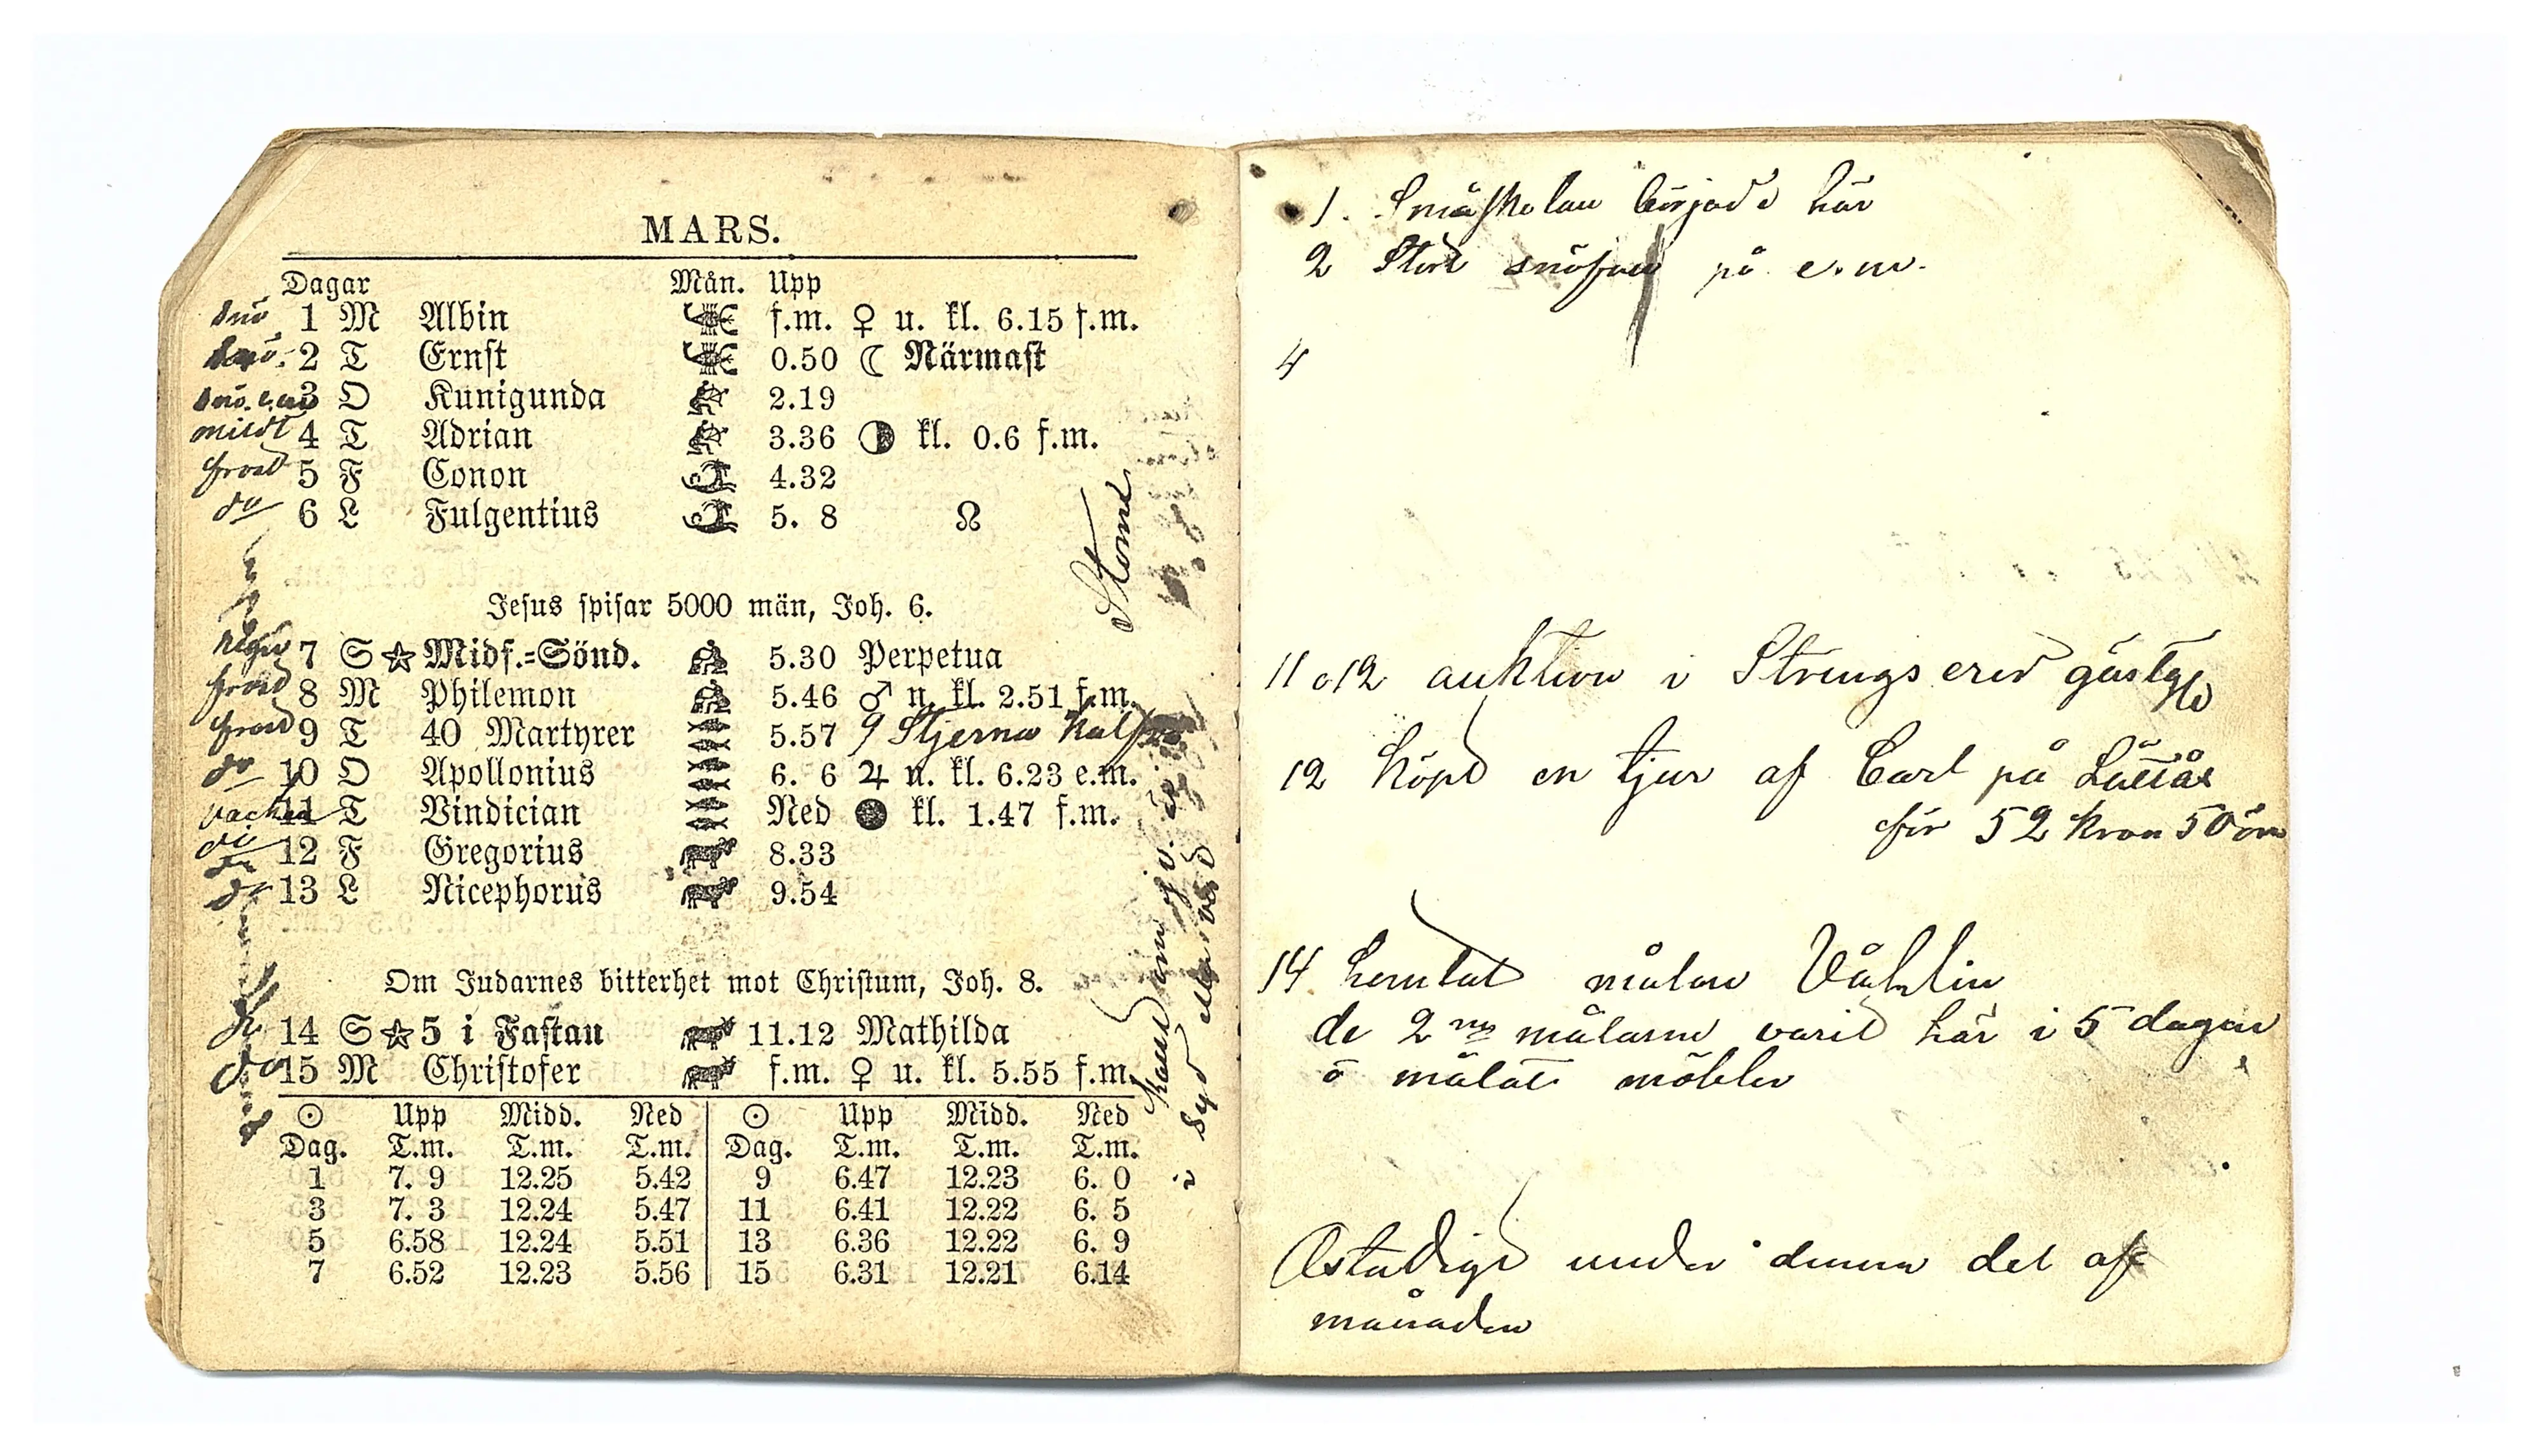 MARS.
Dagar Mån. Upp
snö 1 M Albin f.m. ♀ u. kl. 6.15 f.m.
snö. 2 T Ernst 0.50 ☾ Närmast
snö. e.m 3 O Kunigunda 2.19
mildt 4 T Adrian 3.36 ◑ kl. 0.6 f.m.
frost 5 F Conon 4.32
do 6 L Fulgentius 5. 8 ☊
Storm
Jesus spisar 5000 män, Joh. 6.
regn 7 S ☆ Midf.=Sönd. 5.30 Perpetua
frost 8 M Philemon 5.46 ♂ n. kl. 2.51 f.m.
frost 9 T 40 Martyrer 5.57 9 Stjerna kalf
do 10 O Apollonius 6. 6 ♃ n. kl. 6.23 e.m.
vackert 11 T Vindician Ned ● kl. 1.47 f.m.
do 12 F Gregorius 8.33
do 13 L Nicephorus 9.54
Om Judarnes bitterhet mot Christum, Joh. 8.
14 S ☆ 5 i Fastan 11.12 Mathilda
do 15 M Christofer f.m. ♀ u. kl. 5.55 f.m.
☉ Upp Midd. Ned ☉ Upp Midd. Ned
Dag. T.m. T.m. T.m. Dag. T.m. T.m. T.m.
1 7. 9 12.25 5.42 9 6.47 12.23 6. 0
3 7. 3 12.24 5.47 11 6.41 12.22 6. 5
5 6.58 12.24 5.51 13 6.36 12.22 6. 9
7 6.52 12.23 5.56 15 6.31 12.21 6.14
1. Småskolan började här
2 Stort snöfall på e.m.
4
11 o 12 auktion i Strengsered gästgfd
12 köpt en tjur af Carl på
för 52 kron 50 öre
14 hemtat målare Våhlin
de 2ne målarne varit här i 5 dagar
o målat möbler
Ostadigt under denna del af
månaden